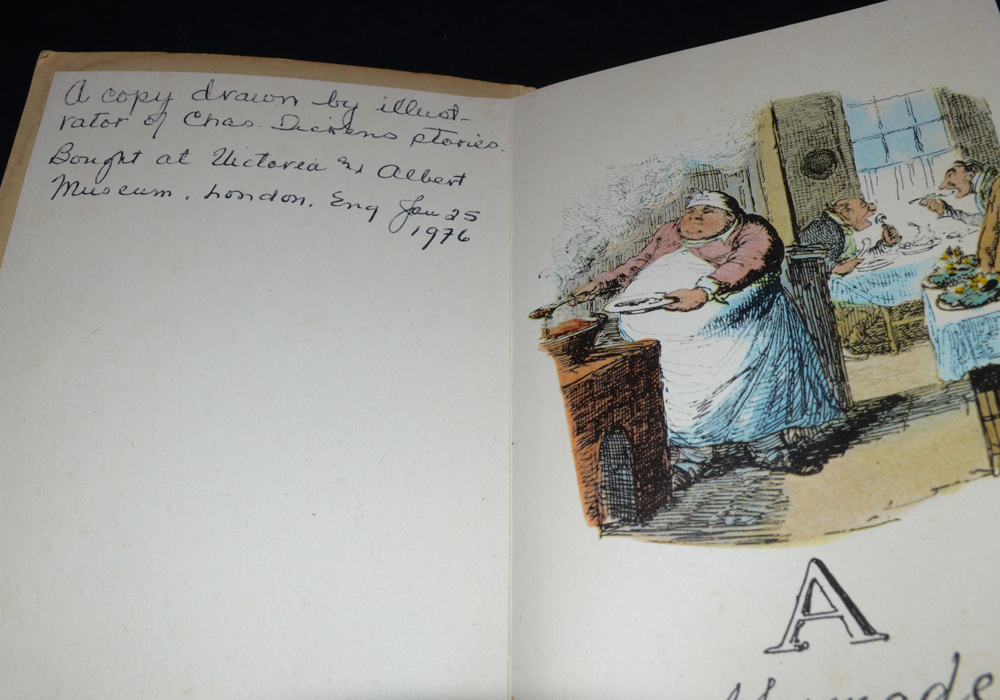 A copy drawn by illust-
rator of Chas. Dickens stories.
Bought at Victoria & Albert
Museum. London. Eng Jan 25
1976
A